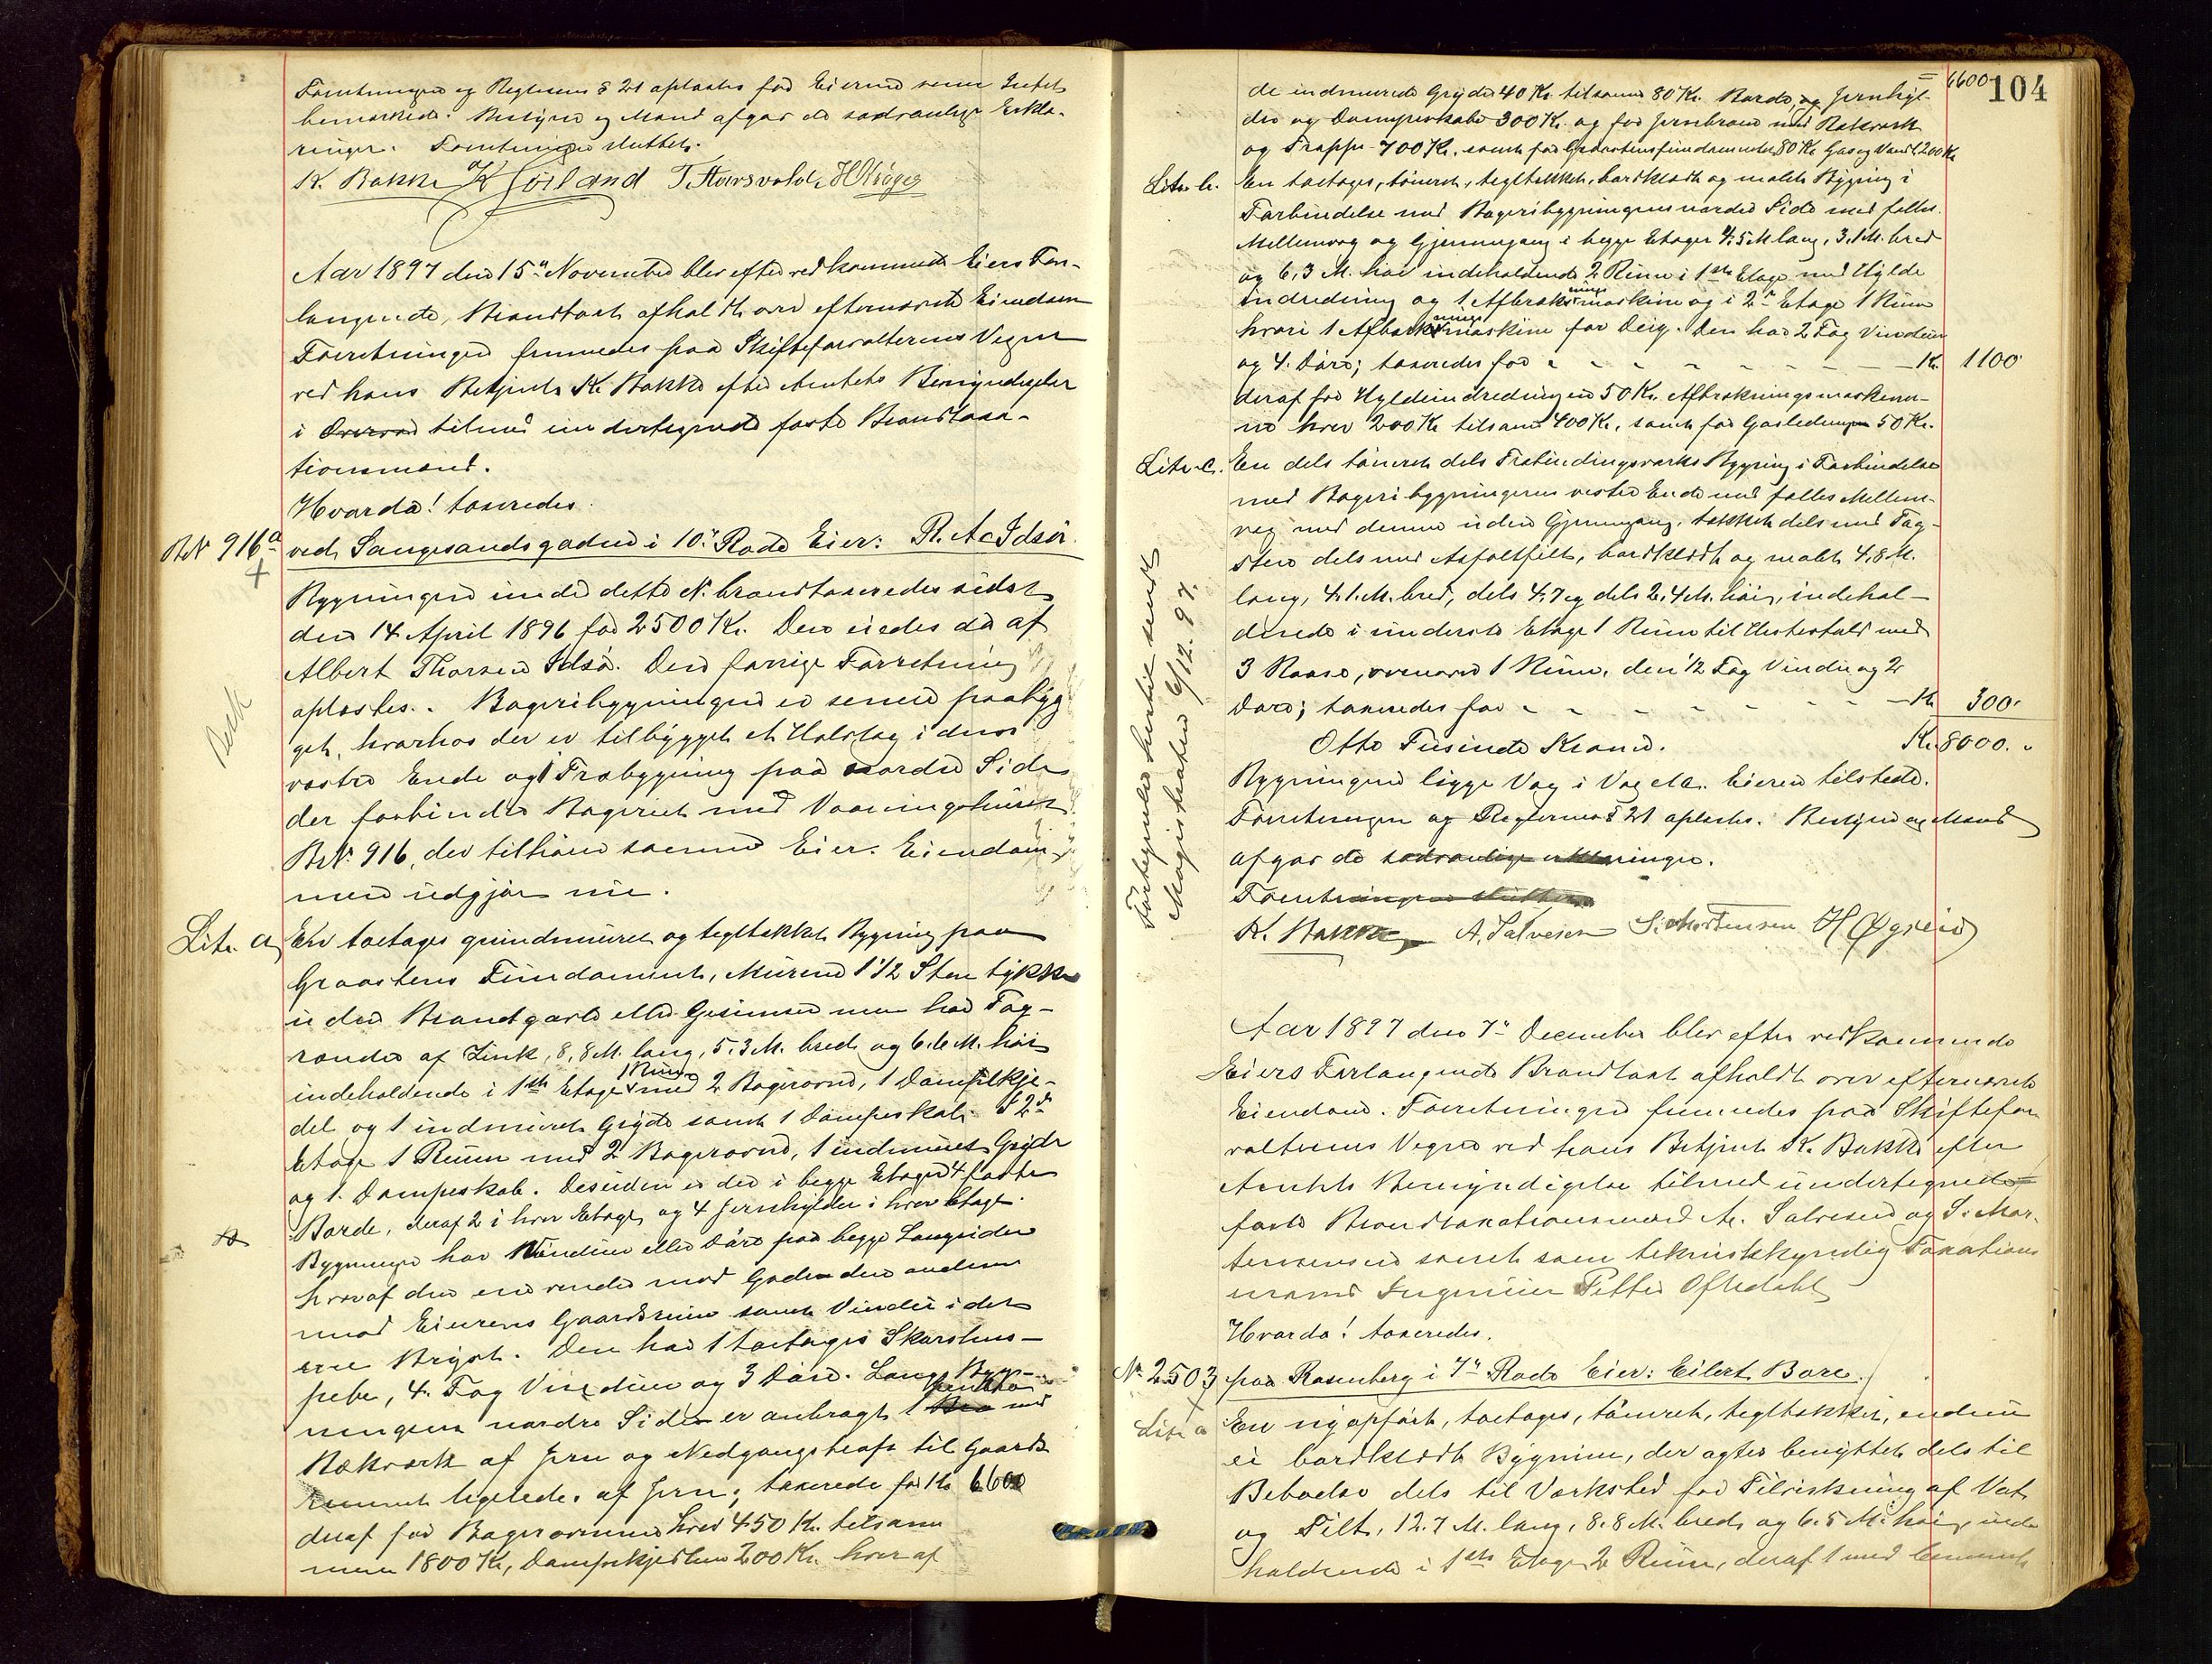 Forretningen og Reglernes § 21 oplæstes for Eieren som Intet
bemærkede. Bestyrer og Mænd afgav de sædvanlige Erklæ-
ringer. Forretningen sluttet.
K. Bakke K Joiland T. Aarsvold
Aar 1897 den 15de November blev efter vedkommende Eiers For-
langende, Brandtaxt afholdt over efternævnte Eiendom
Forretningen fremmedes paa Skifteforvalterens Vegne
ved hans Betjent K. Bakke efter Amtets Bemyndigelse
i Overvær tilmed undertegnede faste Brandtaxa-
tionsmænd.
Hvorda! taxeredes.
BN 916a ved Langesandsgaden i 10de Rode Eier: R. A. Idsö.
Bygningen under dette N. brandtaxeredes sidst
den 14 April 1896 for 2500 Kr. Den eiedes da af
Albert Thorsen Idsö. Den forrige Forretning
oplæstes. Bageribygningen er senere paabyg-
get, hvorhos der er tilbygget et Halvtag i dens
vestre Ende og 1 Træbygning paa nordre Side
der forbinder Bageriet med Vaaningshuset
BN. 916, der tilhører samme Eier. Eiendom-
men udgjør nu.
Litr. a, En toetages grundmuret og tegltækket Bygning paa
Graastens Fundament, Murene 1 1/2 Sten tykke
uden Brandgavle eller Gesimser men har Tag-
render af Zink, 8,8 M. lang, 5,3 M. bred og 6.6 M. høi
indeholdende i 1ste Etage 1 Rum med 2 Bagerovne, 1 Dampkje-
del og 1 indmuret Gryde samt 1 Dampeskab. I 2de
Etage 1 Rum med 2 Bagerovne, 1 indmuret Gryde
og 1 Dampeskab. Desuden er der i begge Etager 4 faste
Borde, deraf 2 i hver Etage, og 4 Jernhylder i hver Etage.
Bygningen har Vinduer eller Døre paa begge Langsider
hvoraf den ene vender mod Gaden den anden
mod Eierens Gaardsrum samt Vindu i det
ene Bryst. Den har 1 toetages Skorstens-
pibe, 4 Fag Vinduer og 3 Døre. Langs Byg-
ningens nordre Side er anbragt 1 med
Rækværk af Jern og Nedgangstrappe til Gaards-
rummet ligeledes af Jern; taxeredes for Kr 6600
deraf for Bagerovnene hver 450 Kr. tilsam-
men 1800 Kr, Dampekjedlen 200 Kr. hver af
6600 104
de indmurede Gryder 40 Kr. tilsamm 80 Kr. Borde, og Jernhyl-
der og Dampeskabe 300 Kr. og for Jernbroen med Rækværk
og Trappe 700 Kr. samt for Graastensfundamentet 80 Kr Gas og Vandl. 200 Kr
Litr. b. En toetages, tömret, tegltækket, bordklædt og malet Bygning i
Forbindelse med Bageribygningens nordre Side med fælles
Mellemvæg og Gjennemgang i begge Etager 4,5 M lang, 3,1 M. bred
og 6,3 M. høi indeholdende 2 Rum i 1ste Etage med Hylde
indredning og 1 Afbrækningsmaskine og i 2den Etage 1 Rum
hvori 1 Afbrækningsmaskine for Deig. Den har 2 Fag Vinduer
og 4. Døre; taxeredes for Kr. 1100
deraf for Hyldeindredningen 50 Kr. Afbrækningsmaskiner-
ne hver 200 Kr tilsam 400 Kr, samt for Gasledningen 50 Kr.
Litr. c. En dels tömret dels Træbindingsværks Bygning i Forbindelse
med Bageribygningens vestre Ende med fælles Mellem-
væg med denne uden Gjennemgang, tækket dels med Tag-
sten dels med Asfaltfilt, bordklædt og malet 4,8 M.
lang, 4.1. M. bred, dels 4,7 og dels 2,4 M. høi, indehol-
dende i underste Etage 1 Rum til Hestestald med
3 Baase, ovenover 1 Rum, den 1/2 Fag Vindu og 2
Døre; taxeredes for Kr 300.
Otte Tusinde Kroner. Kr. 8000. "
Bygningen ligge Væg i Væg etc. Eieren tilstede.
Forretningen og Reglernes § 21 oplæstes. Bestyrer og Mænd
afgav de sædvanlige erklæringer.
Forretningen sluttet
K. Bakke A. Salvesen S. Mortensen H Øgreid
Fortegnelse hertil sendt
Magistraten 6/12. 97.
Aar 1897 den 7de December blev efter vedkommende
Eiers Forlangende Brandtaxt afholdt over efternævnte
Eiendom. Forretningen fremmedes paa Skiftefor
valterens Vegne ved hans Betjent K. Bakke efter
Amtets Bemyndigelse tilmed undertegnede
faste Brandtaxationsmænd A. Salvesen og S. Mor-
tensen samt som tekniskkyndig Taxations
mand Ingeniør Petter Oftedahl
Hvorda! taxeredes.
Nr. 2503 paa Rosenberg i 7de Rode Eier: Eilert Bore.
Litr a En nyopført, toetages, tömret, tegltækket, endnu
ei bordklædt Bygning, der agtes benyttet dels til
Beboelse dels til Værksted for Tilvirkning af Vat
og Filt, 12.7 M. lang, 8.8 M. bred og 6.5 M. høi, inde
holdende i 1ste Etage 2 Rum, deraf 1 med